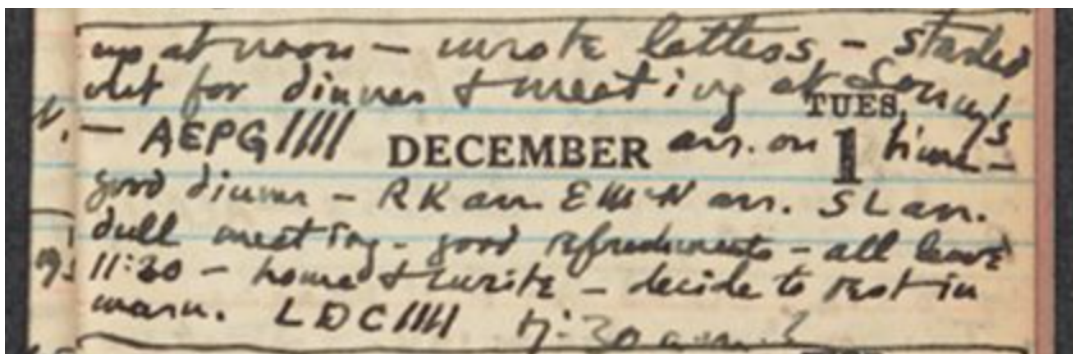 up at noon – wrote letters – started
out for dinner & meeting at Sonny's
TUES.
– AEPG//// DECEMBER arr. on 1 time –
good dinner – RK arr EMcN arr. SL arr.
dull meeting – good refreshments – all leave
11:30 – home & write – decide to rest in
morn. LDC////